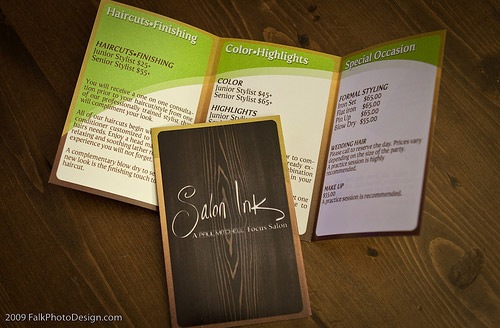 Haircuts•Finishing
HAIRCUTS•FINISHING
Junior Stylist $25+
Senior Stylist $55+
You will receive a one on one consulta-
tion prior to your haircut from one
of our professionally trained stylist that
will compliment your look.
All of our haircuts begin w
conditioner customized to
hairs needs. Enjoy a head ma
relaxing and soothing lather
experience you will not forget.
A complementary blow dry to s
new look is the finishing touch t
haircut.
Color•Highlights
COLOR
Junior Stylist $45+
Senior Stylist $65+
HIGHLIGHTS
Junior Styl
to com-
ready ex-
mbination
in your
one to
Special Occasion
FORMAL STYLING
Iron Set $65.00
Flat iron $65.00
Pin Up $65.00
Blow Dry $55.00
WEDDING HAIR
Please call to reserve the day. Prices vary
depending on the size of the party.
A practice session is highly
recommended.
MAKE UP
$55.00
A practice session is recommended.
Salon Ink
A PAUL MITCHELL Focus Salon
2009 FalkPhotoDesign.com